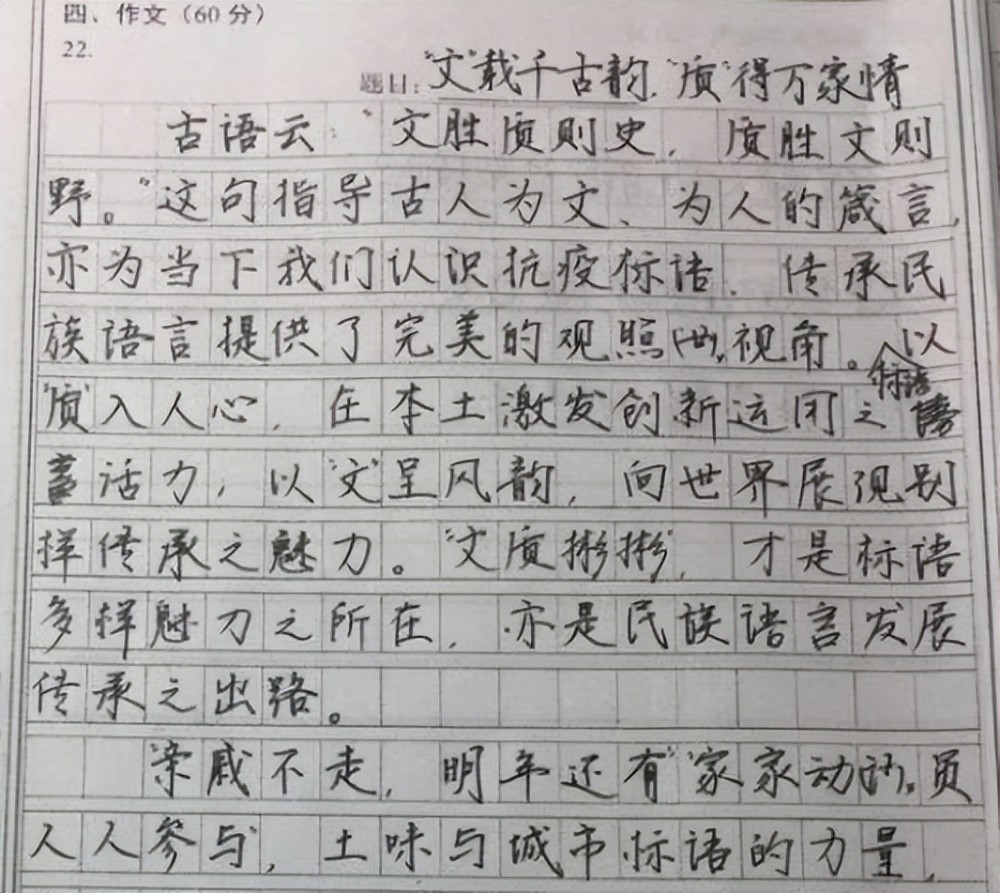 四、作文（60分）
22.
题目：“文”载千古韵，“质”得万家情
古语云：“文胜质则史，质胜文则
野。”这句指导古人为文、为人的箴言，
亦为当下我们认识抗疫标语、传承民
族语言提供了完美的观照视角。以
标语
“质”入人心，在本土激发创新运用之
活力，以“文”呈风韵，向世界展现别
样传承之魅力。“文质彬彬”，才是标语
多样魅力之所在，亦是民族语言发展
传承之出路。
“亲戚不走，明年还有”“家家动员
人人参与”，土味与城市标语的力量，